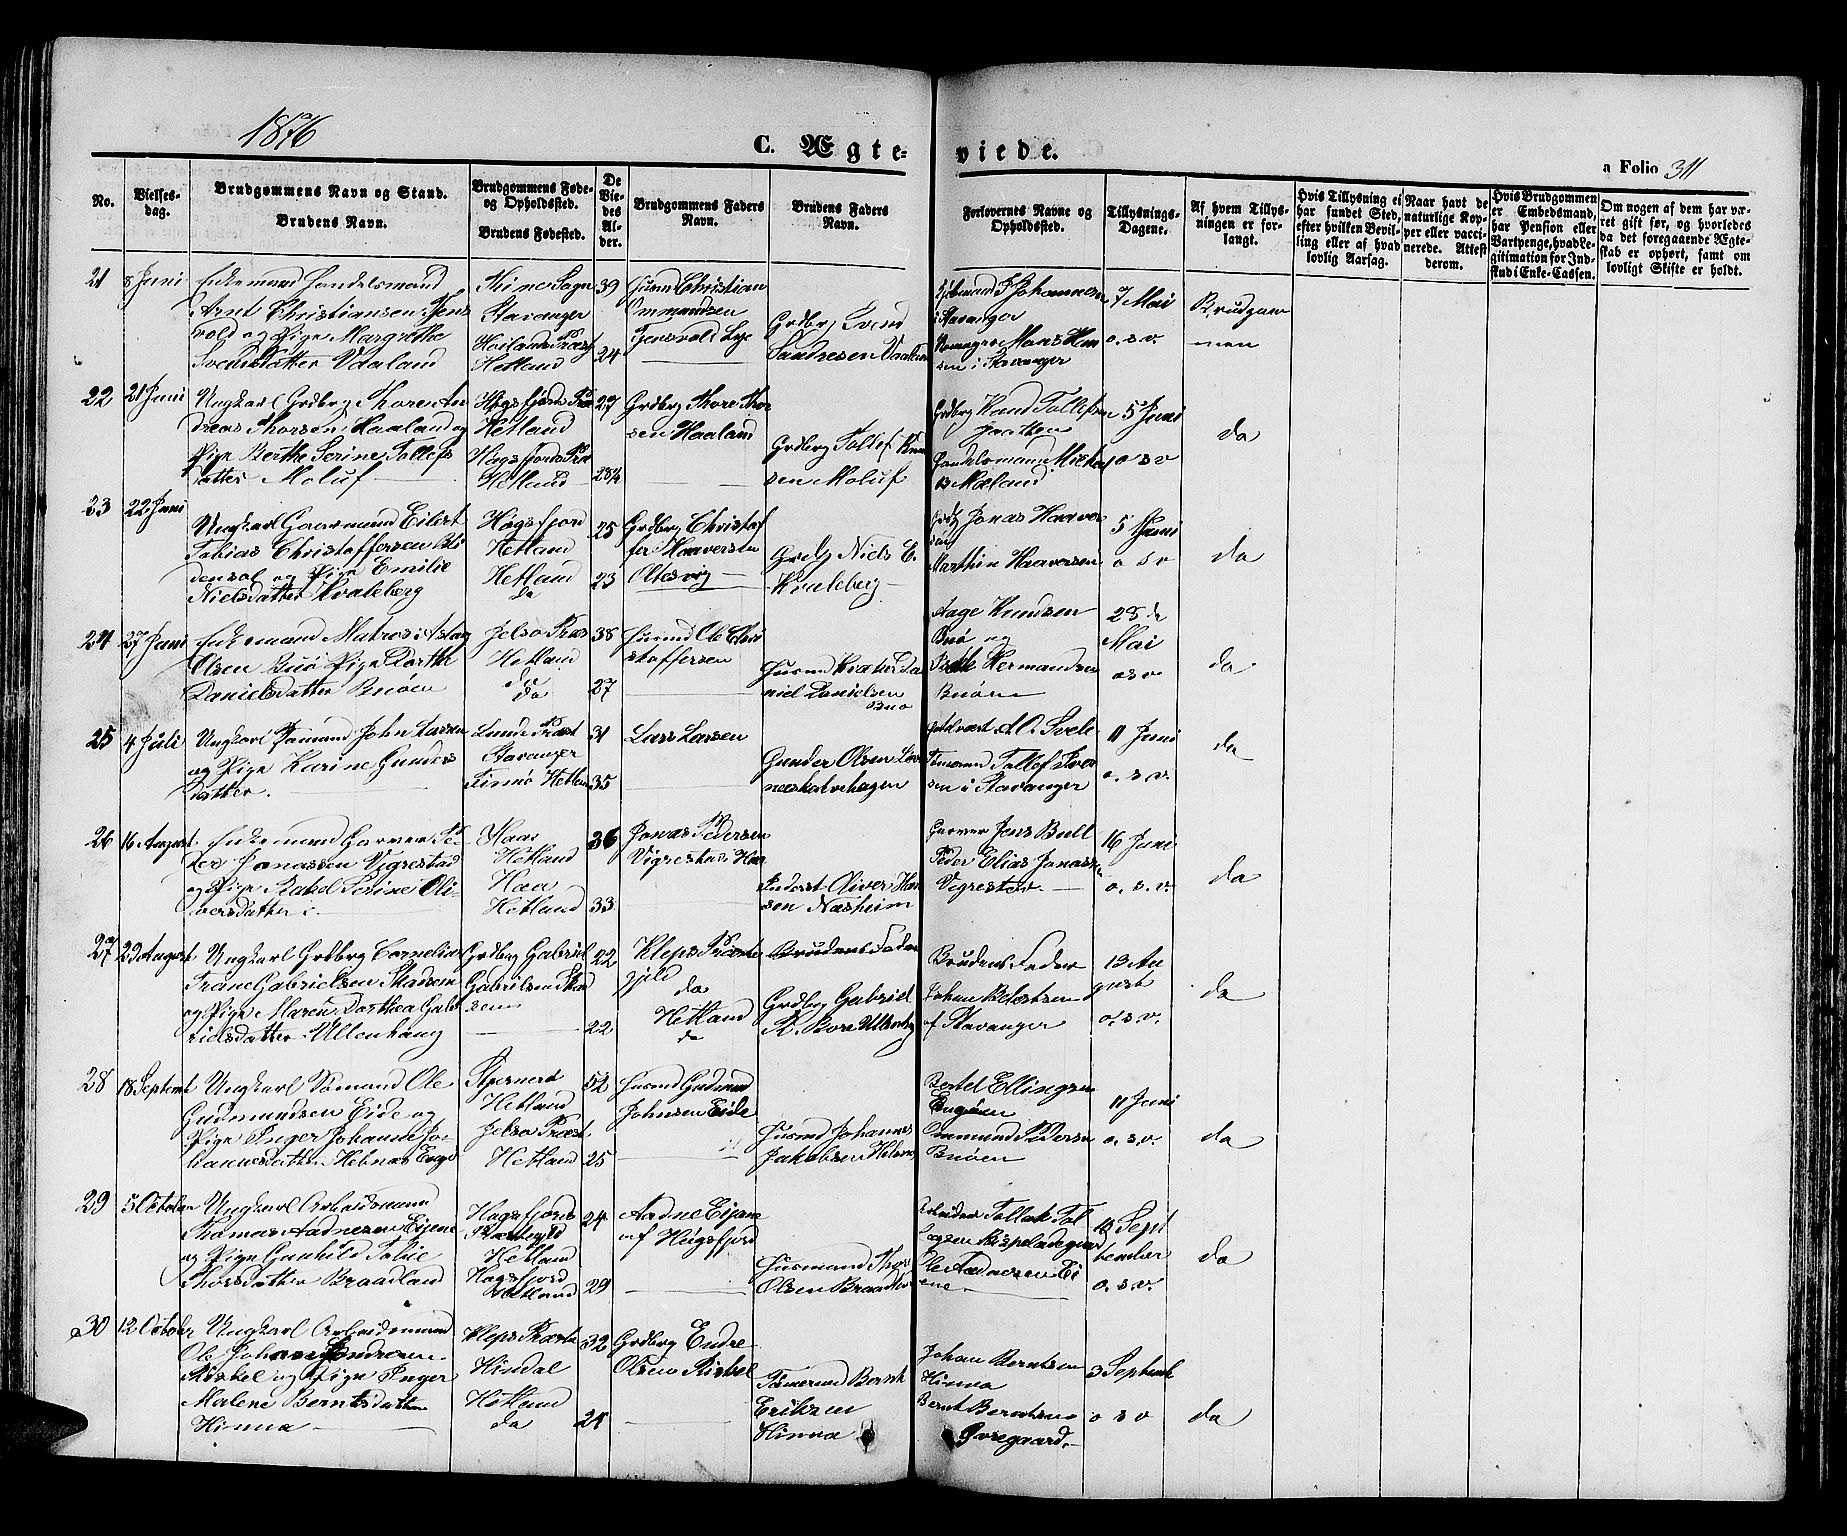 1876
C. Ægte-
viede.
a Folio 311
No.
Vielses-
dag.
Brudgommens Navn og Stand.
Brudens Navn.
Brudgommens Føde-
og Opholdssted.
Brudens Fødested.
De
Vie-
des
Al-
der.
Brudgommens Faders
Navn.
Brudens Faders
Navn.
Forlovernes Navne og
Opholdssted.
Tillysnings-
Dagene.
Af hvem Tillys-
ningen er for-
langt.
Hvis Tillysning ei
har fundet Sted,
efter hvilken Bevil-
ling eller af hvad
lovlig Aarsag.
Naar havt de
naturlige Kop-
per eller vacci-
nerede. Attest
derom.
Hvis Brudgommen
er Embedsmand,
har Pension eller
Vartpenge, hvad Le-
gitimation for Ind-
skud i Enke-Cassen.
Om nogen af dem har væ-
ret gift før, og hvorledes
da det foregaaende Ægte-
skab er ophørt, samt om
lovligt Skifte er holdt.
21
8 Juni
Enkemand Handelsmand
Arnt Christiansen
vold og Pige Margrethe
Svendsdatter Vaaland
Sogn
Stavanger
Hetland
39
24
Husmd Christian
Ommundsen
Grdbrg Svend
Johannesen
i Stavanger
Mons Han
sen i Stavanger
7 Mai
o. s. v.
Brudgom
men
22
21 Juni
Ungkarl Grdbrg Thore An
dreas Thorsen Haaland og
Pige Berthe Serine Tollefs
datter Moluf
Høgsfjords Præ
Hetland
Høgsfjords Præ
Hetland
27
28½
Grdbrg Thore Thor
sen Haaland
Grdbrg Tollef Knu
sen Moluf
Grdbrg Knud Tollefsen
Jaatten
Handelsmand
Mæland
5 Juni
o s v
da
23
22 Juni
Ungkarl Gaardmand Eilert
Tobias Christoffersen
og Pige Emilie
Nielsdatter Kvaleberg
Høgsfjord
Hetland
Hetland
da
25
23
Grdbrg Christof
fer Haaversen
Oltesvig
Grdbrg Niels E.
Kvaleberg
Jonas Haaver
sen
Marthin Haaversen
5 Juni
o s v
da
24
27 Juni
Enkemand Matros Aslag
Olsen Buø Pige Dorthe
Danielsdatter Buøen
Jelsø Præs
Hetland
da
da
38
27
Husmd Ole Chri
stoffersen
Husmd Da
niel Danielsen
Buø
Aage Knudsen
Buø og
Hermandsen
Buøen
28 de
Mai
o s v
da
25
4 Juli
Ungkarl Sømand John Larsen
og Pige Karine Gunders
datter.
Lunde Præst
Stavanger
Hetland
31
35
Lars Larsen
Gunder Olsen
A. O. Svele
Tømmermd Tollef Iver
sen i Stavanger
11 Juni
o. s. v.
da
26
16 August
Enkemand Garver Pe
der Jonassen Vigrestad
og Pige Rakel Serine Oli
versdatter
Haa
Hetland
Haa
Hetland
36
33
Jonas Pedersen
Vigrestad Haa
Inderst Oliver Han
sen Næsheim
Garver Jens Bull
Peder Elias Jonassen
Vigrestad
16 Juni
o. s. v.
da
27
23 August
Ungkarl Grdbrg Cornelius
Trane Gabrielsen Skadsem
og Pige Maren Dorthea Gab
rielsdatter Ullenhaug
Grdbrg Gabriel
Gabrielsen Skad
sem
22
22
Kleps Præste
gjeld
da
Hetland
da
Brudens Fader
Grdbrg Gabriel
B. Bore Ullenhg
Brudens Fader
Johan Berntsen
af Stavanger
13 Au
gust
o. s. v.
da
28
18 Septembr
Ungkarl Sømand Ole
Gudmundsen Eide og
Pige Inger Johanne Jo-
hannesdatter Helnæs Engø
Stjernerø
Hetland
Jelsø Præst
Hetland
52
25
Husmd Gudmund
Johnsen Eide
Husmd Johannes
Jakobsen Helnæs
Bertel Ellingsen
Engøen
Ommund Pedersen
Buøen
11 Juni
o. s. v.
da
29
5 October
Ungkarl Arbeidsmand
Thomas Aadnesen Eijene
og Pige Gunhild Tobie
Thorsdatter Braadland
Høgsfjords
Præstegjld
Hetland
Høgsfjord
Hetland
24
29
Aadne Eijene
af Høgsfjord
Husmand Thor
Olsen Braadland
Arbeider Tollak Tol
laksen Bispeladegaard
Ole Aadnesen Ei
ene
10 Sept
tember
o. s. v.
da
30
12 October
Ungkarl Arbeidsmand
Ole Johan Endresen
Riskel og Pige Inger
Malene Berntsdatter
Hinna
Kleps Præste
Hindal
Hetland
da
32
21
Grdbrg Endre
Olsen Riskel
Tømmermd Bernt
Eriksen
Hinna
Johan Berntsen
Hinna
Bernt Berntsen
Øvregaard
3 Septemb
o s v
da